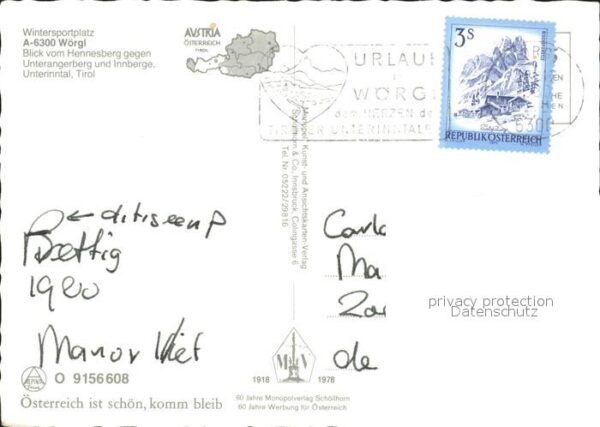 Wintersportplatz
A-6300 Wörgl
Blick vom Hennesberg gegen
Unterangerberg und Innberge,
Unterinntal, Tirol
AVSTRIA
ÖSTERREICH
TIROL
URLAUB
in
WÖRGL
dem HERZEN des
TIROLER UNTERINNTALES
6300
3S
REPUBLIK ÖSTERREICH
Monopol Kunst- und Ansichtskarten-Verlag
Schöllhorn & Co., Innsbruck, Colingasse 6
Tel. Nr. 05222/29816
Prettig
1980
Carla
Ma
Zo
de
privacy protection
Datenschutz
ALPINA
O 9156608
Österreich ist schön, komm bleib
M V
1918 1978
60 Jahre Monopolverlag Schöllhorn
60 Jahre Werbung für Österreich